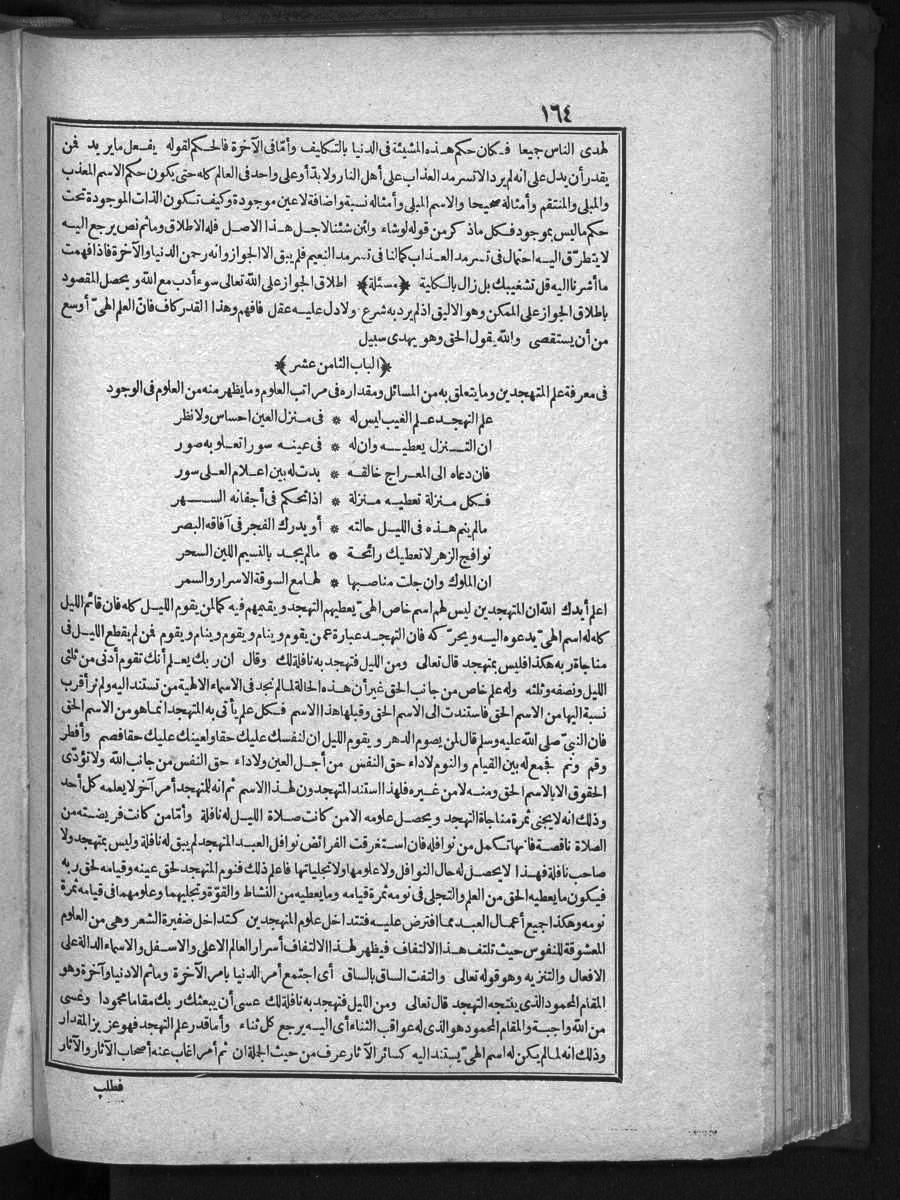 ١٦٤
لهدى الناس جميعا فكان حكم هذه المشيئة فى الدنيا بالتكليف وأمّا فى الآخرة فالحكم لقوله يفعل ما يريد فمن
يقدر أن يدل على انه لم يرد الا تسرمد العذاب على أهل النار ولا بدّ أو على واحد فى العالم كله حتى يكون حكم الاسم المعذب
والمبلى والمنتقم وأمثاله صحيحا والاسم المبلى وأمثاله نسبة واضافة لا عين موجودة وكيف تكون الذات الموجودة تحت
حكم ما ليس بموجود فكل ماذكر من قوله لو شاء ولئن شئنا لاجل هذا الاصل فله الاطلاق وما ثم نص يرجع اليه
لا يتطرّق اليه احتمال فى تسرمد العذاب كما لنا فى تسرمد النعيم فلم يبق الا الجواز وانه رحمن الدنيا والآخرة فاذا فهمت
ما أشرنا اليه قل تشغيبك بل زال بالكلية ﴿مسئلة﴾ اطلاق الجواز على الله تعالى سوء أدب مع الله ويحصل المقصود
باطلاق الجواز على الممكن وهو الاليق اذ لم يرد به شرع ولا دل عليه عقل فافهم وهذا القدر كاف فانّ العلم الهىّ أوسع
من أن يستقصى والله يقول الحق وهو يهدى سبيل
﴿الباب الثامن عشر﴾
فى معرفة علم المتهجدين وما يتعلق به من المسائل ومقداره فى مراتب العلوم وما يظهر منه من العلوم فى الوجود
علم التهجد علم الغيب ليس له * فى منزل العين احساس ولا نظر
ان التنزل يعطيه وان له * فى عينه سورا تعلو به صور
فان دعاه الى المعراج خالقه * بدت له بين اعلام العلى سور
فكل منزلة تعطيه منزلة * اذا تحكم فى أجفانه السهر
مالم ينم هذه فى الليل حالته * أو يدرك الفجر فى آفاقه البصر
نوافج الزهر لا تعطيك رائحة * مالم يجد بالنسيم اللين السحر
ان الملوك وان جلت مناصبها * لها مع السوقة الاسرار والسمر
اعلم أيدك الله ان المتهجدين ليس لهم اسم خاص الهىّ يعطيهم التهجد ويقيمهم فيه كما لمن يقوم الليل كله فان قائم الليل
كله له اسم الهىّ يدعوه اليه ويحرّكه فان التهجد عبارة عمن يقوم وينام ويقوم وينام ويقوم فمن لم يقطع الليل فى
مناجاة ربه هكذا فليس بمتهجد قال تعالى ومن الليل فتهجد به نافلة لك وقال ان ربك يعلم أنك تقوم أدنى من ثلثى
الليل ونصفه وثلثه وله علم خاص من جانب الحق غير أن هذه الحالة لما لم نجد فى الاسماء الالهية من تستند اليه ولم نر أقرب
نسبة اليها من الاسم الحق فاستندت الى الاسم الحق وقبلها هذا الاسم فكل علم يأتى به المتهجد انما هو من الاسم الحق
فان النبىّ صلى الله عليه وسلم قال لمن يصوم الدهر ويقوم الليل ان لنفسك عليك حقا ولعينك عليك حقا فصم وأفطر
وقم ونم فجمع له بين القيام والنوم لاداء حق النفس من أجل العين ولاداء حق النفس من جانب الله ولا تؤدّى
الحقوق الا بالاسم الحق ومنه لا من غيره فلهذا استند المتهجدون لهذا الاسم ثم انه للمتهجد أمر آخر لا يعلمه كل أحد
وذلك انه لا يجنى ثمرة مناجاة التهجد ويحصل علومه الا من كانت صلاة الليل له نافلة وأمّا من كانت فريضته من
الصلاة ناقصة فانها تكمل من نوافله فان استغرقت الفرائض نوافل العبد المتهجد لم يبق له نافلة وليس بمتهجد ولا
صاحب نافلة فهذا لا يحصل له حال النوافل ولا علومها ولا تجلياتها فاعلم ذلك فنوم المتهجد لحق عينه وقيامه لحق ربه
فيكون ما يعطيه الحق من العلم والتجلى فى نومه ثمرة قيامه وما يعطيه من النشاط والقوّة وتجليهما وعلومهما فى قيامه ثمرة
نومه وهكذا جميع أعمال العبد مما افترض عليه فتتداخل علوم المتهجدين كتداخل ضفيرة الشعر وهى من العلوم
المعشوقة للنفوس حيث تلتف هذا الالتفاف فيظهر لهذا الالتفاف أسرار العالم الاعلى والاسفل والاسماء الدالة على
الافعال والتنزيه وهو قوله تعالى والتفت الساق بالساق أى اجتمع أمر الدنيا بامر الآخرة وما ثم الا دنيا وآخرة وهو
المقام المحمود الذى ينتجه التهجد قال تعالى ومن الليل فتهجد به نافلة لك عسى أن يبعثك ربك مقاما محمودا وعسى
من الله واجبة والمقام المحمود هو الذى له عواقب الثناء أى اليه يرجع كل ثناء وأما قدر علم التهجد فهو عزيز المقدار
وذلك انه لما لم يكن له اسم الهىّ يستند اليه كسائر الآثار عرف من حيث الجلة ان ثم أمر اغاب عنه أصحاب الآثار والآثار
فطلب